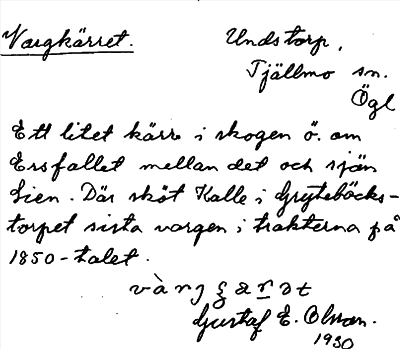 Vargkärret.
Undstorp,
Tjällmo sn.
Ögl
Ett litet kärr i skogen ö. om
Ersfallet mellan det och sjön
Lien. Där sköt Kalle i Grytebäcks-
torpet sista vargen i trakterna på
1850-talet.
Gustaf E. Olsson.
1930